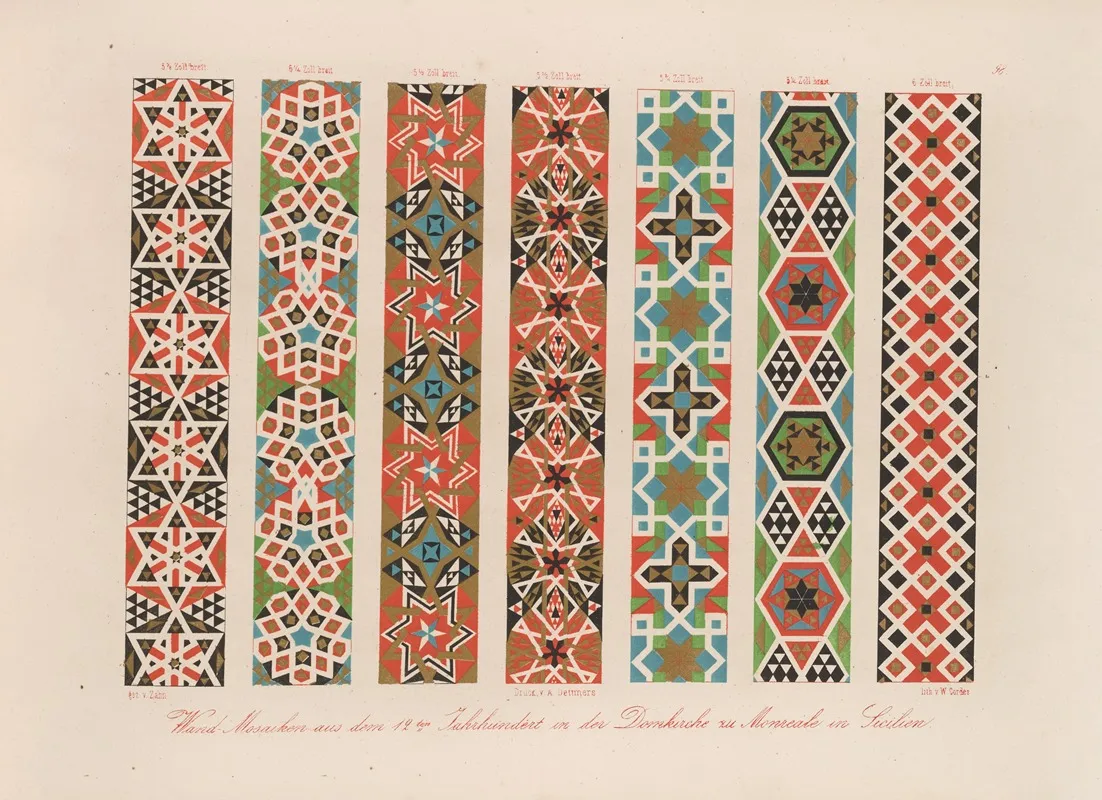 Zoll breit
6 ¼ Zoll breit
5 ½ Zoll breit.
5 ½ Zoll breit
5 ¾ Zoll breit
5 ¼ Zoll breit.
6 Zoll breit.
gez. v. Zahn
Druck v. A. Dettmers
lith. v. W. Cordes
Wand-Mosaiken aus dem 12ten Jahrhundert in der Domkirche zu Monreale in Sicilien.